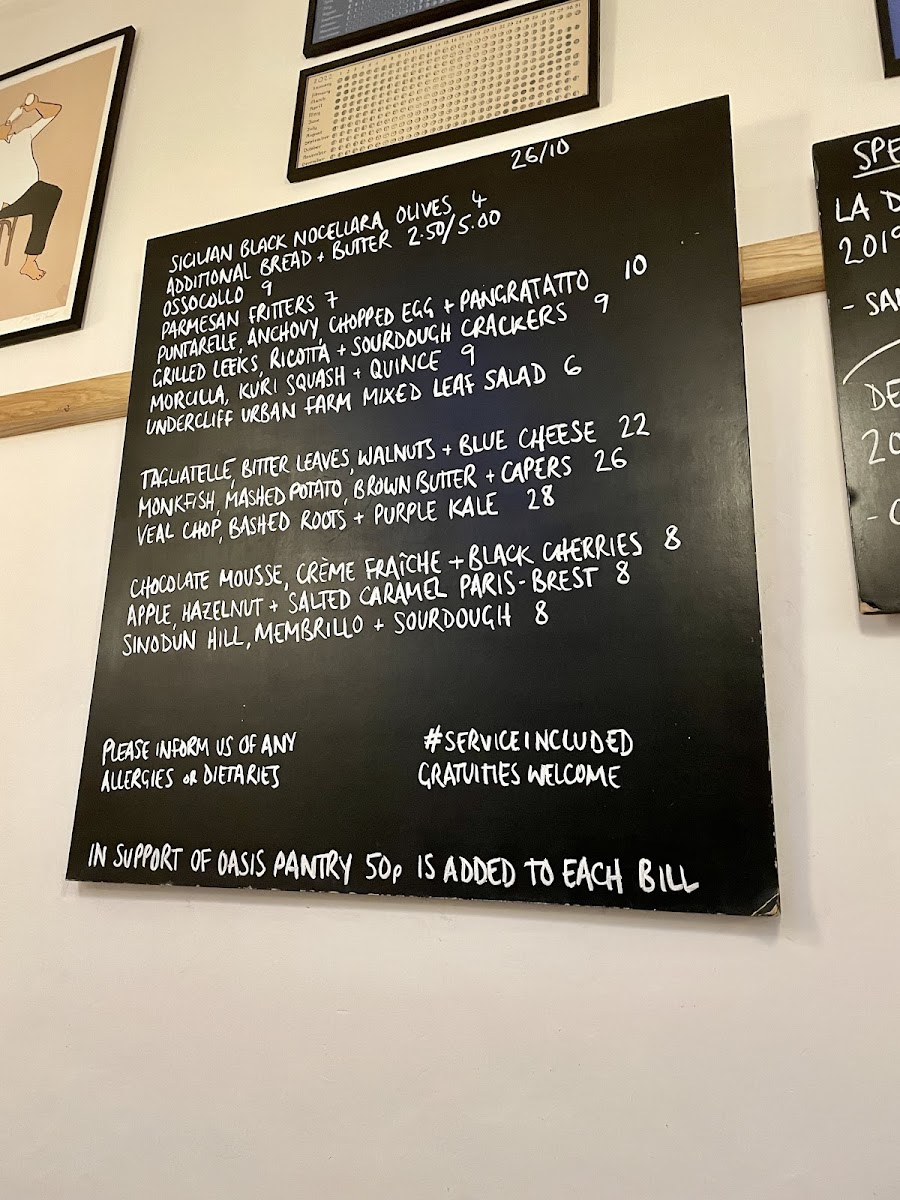 2022
26/10
SICILIAN BLACK NOCELLARA OLIVES 4
ADDITIONAL BREAD + BUTTER 2.50/5.00
OSSOCOLLO 9
PARMESAN FRITTERS 7
PUNTARELLE, ANCHOVY, CHOPPED EGG + PANGRATATTO 10
GRILLED LEEKS, RICOTTA + SOURDOUGH CRACKERS 9
MORCILLA, KURI SQUASH + QUINCE 9
UNDERCLIFF URBAN FARM MIXED LEAF SALAD 6
TAGLIATELLE, BITTER LEAVES, WALNUTS + BLUE CHEESE 22
MONKFISH, MASHED POTATO, BROWN BUTTER + CAPERS 26
VEAL CHOP, BASHED ROOTS + PURPLE KALE 28
CHOCOLATE MOUSSE, CRÈME FRAÎCHE + BLACK CHERRIES 8
APPLE, HAZELNUT + SALTED CARAMEL PARIS-BREST 8
SINODUN HILL, MEMBRILLO + SOURDOUGH 8
PLEASE INFORM US OF ANY
ALLERGIES OR DIETARIES
#SERVICEINCLUDED
GRATUITIES WELCOME
IN SUPPORT OF OASIS PANTRY 50p IS ADDED TO EACH BILL
SPE
LA D
2019
- SA
DE
20